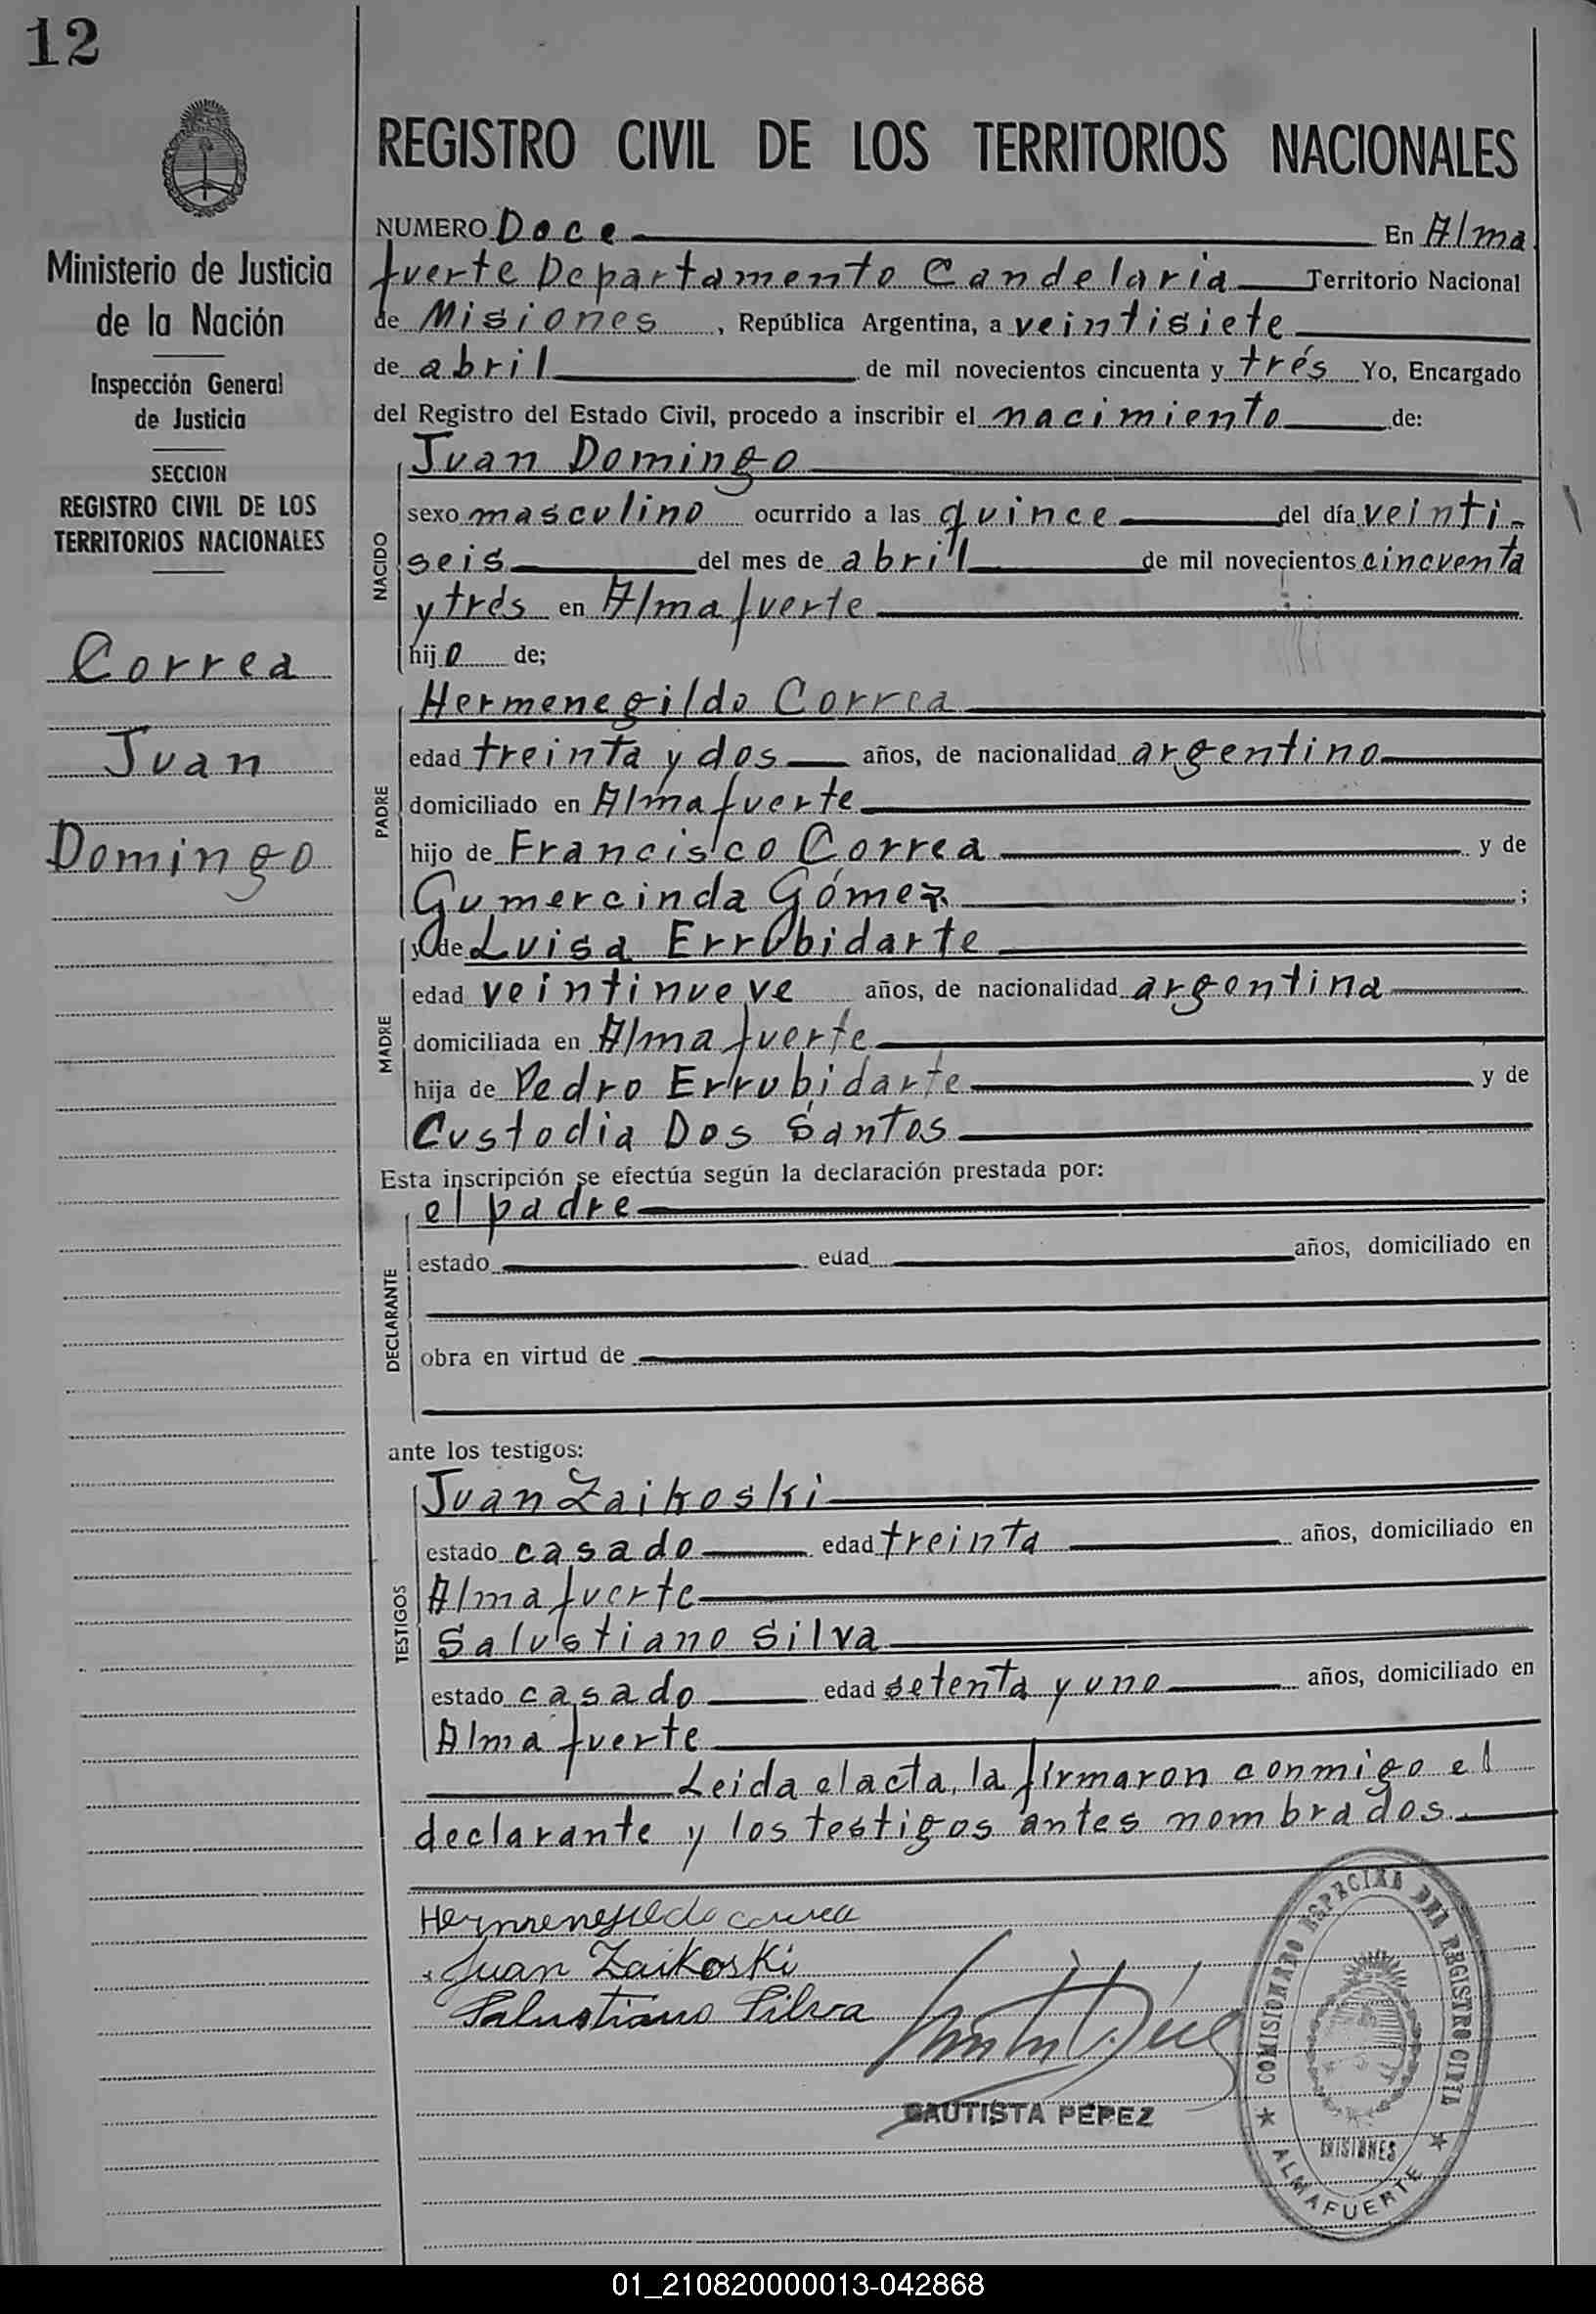 12
Ministerio de Justicia
de la Nación
Inspección General
de Justicia
SECCION
REGISTRO CIVIL DE LOS
TERRITORIOS NACIONALES
Correa
Juan
Domingo
REGISTRO CIVIL DE LOS TERRITORIOS NACIONALES
NUMERO Doce En Alma
fuerte Departamento Candelaria Territorio Nacional
de Misiones, República Argentina, a veintisiete
de abril de mil novecientos cincuenta y trés Yo, Encargado
del Registro del Estado Civil, procedo a inscribir el nacimiento de:
NACIDO
Juan Domingo
sexo masculino ocurrido a las quince del día veinti-
seis del mes de abril de mil novecientos cincuenta
y trés en Almafuerte
hijo de;
PADRE
Hermenegildo Correa
edad treinta y dos años, de nacionalidad argentino
domiciliado en Almafuerte
hijo de Francisco Correa y de
Gumercinda Gómez ;
MADRE
y de Luisa Errubidarte
edad veintinueve años, de nacionalidad argentina
domiciliada en Almafuerte
hija de Pedro Errubidarte y de
Custodia Dos Santos
Esta inscripción se efectúa según la declaración prestada por:
DECLARANTE
el padre
estado edad años, domiciliado en
obra en virtud de
ante los testigos:
TESTIGOS
Juan Zaikoski
estado casado edad treinta años, domiciliado en
Almafuerte
Salustiano Silva
estado casado edad setenta y uno años, domiciliado en
Almafuerte
Leida el acta, la firmaron conmigo el
declarante y los testigos antes nombrados.
Hermenegildo Correa
Juan Zaikoski
Salustiano Silva
BAUTISTA PEPEZ
COMISIONADO ESPECIAL DEL REGISTRO CIVIL
MISIONES
ALMAFUERTE
01_210820000013-042868